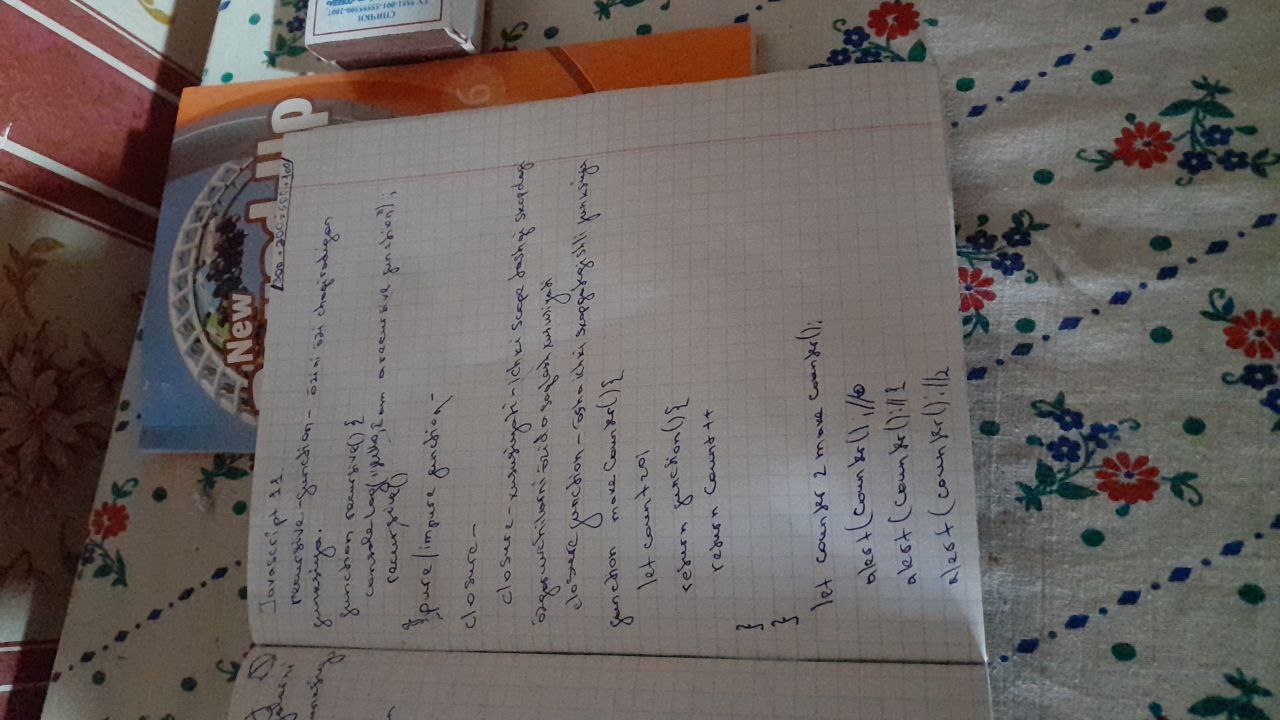 Javascript 11.
recursive-function - o'zini o'zi chaqiradigan
funksiya.
function recursive() {
console.log("Hello, I am a recursive function");
recursive()
}
pure/impure function-
closure-
closure - xususiyati - Ichki scope tashqi skopdagi
o'zgaruvchilarni o'zida saqlash xususiyati
closure function - o'sha ichki skopga tegishli funksiya
function makeCounter() {
let count=0;
return function() {
return count++
}
}
let counter = makeCounter();
alert(counter(); //0
alert(counter(); // 1
alert(counter(); //2
New
Up
6
СПИЧКИ